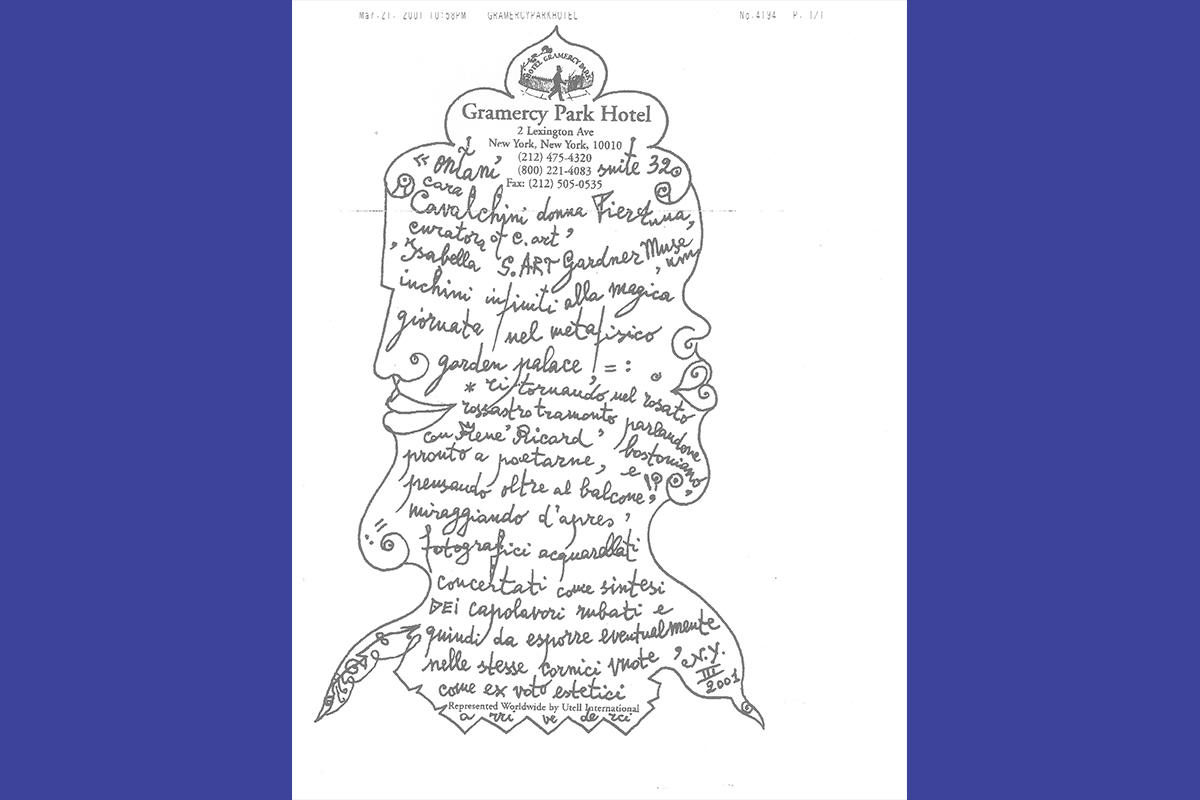 Mar. 21. 2001 10:58PM GRAMERCYPARKHOTEL No. 4194 P. 1/1
HOTEL GRAMERCY PARK
Gramercy Park Hotel
2 Lexington Ave
New York, New York, 10010
(212) 475-4320
« Ontani (800) 221-4083 suite 32
Fax: (212) 505-0535
cara
Cavalchini donna Pieranna,
curatora of c.art,
Isabella S.ART Gardner Museum,
inchini infiniti alla magica
giornata nel metafisico
garden palace, = :
* ritornando nel rosato
rossastro tramonto parlandone
con René Ricard, bostoniano,
pronto a poetarne, e
pensando oltre al balcone,
miraggiando d'apres,
fotografici acquarellati
concertati come sintesi
DEI capolavori rubati e
quindi da esporre eventualmente
nelle stesse cornici vuote, N.Y.
come ex voto estetici III 2001
Represented Worldwide by Utell International
a rri ve de rci